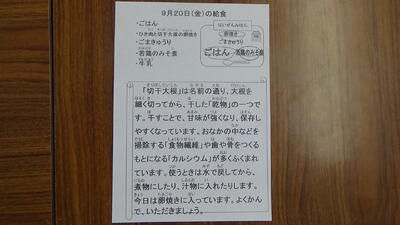 9月20日(金)の給食
・ごはん
・ひき肉と切干大根の卵焼き
・ごまきゅうり
・若鶏のみそ煮
・牛乳
はいぜんみほん
卵焼き
ごまきゅうり
ごはん
若鶏のみそ煮
「切干大根」は名前の通り、大根を
細く切ってから、干した「乾物」の一つで
す。干すことで、甘味が強くなり、保存し
やすくなっています。おなかの中などを
掃除する「食物繊維」や歯や骨をつくる
もとになる「カルシウム」が多くふくまれ
ています。使うときは水で戻してから、
煮物にしたり、汁物に入れたりします。
今日は卵焼きに入っています。よくかん
で、いただきましょう。